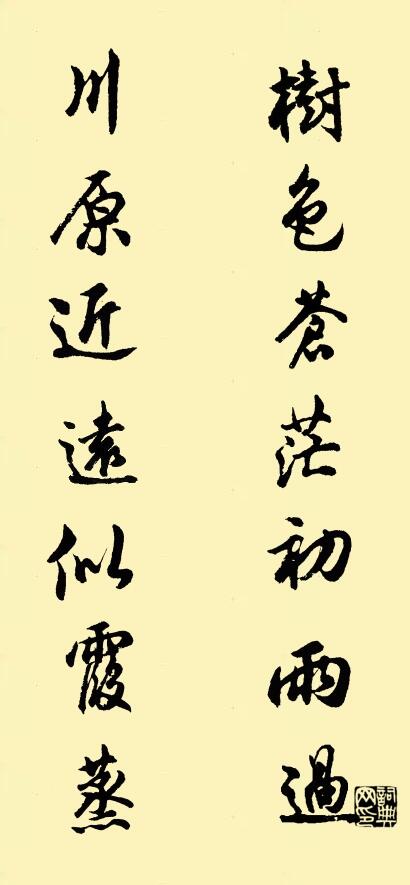 樹色蒼茫初雨過
川原近遠似霞蒸
詞典網印